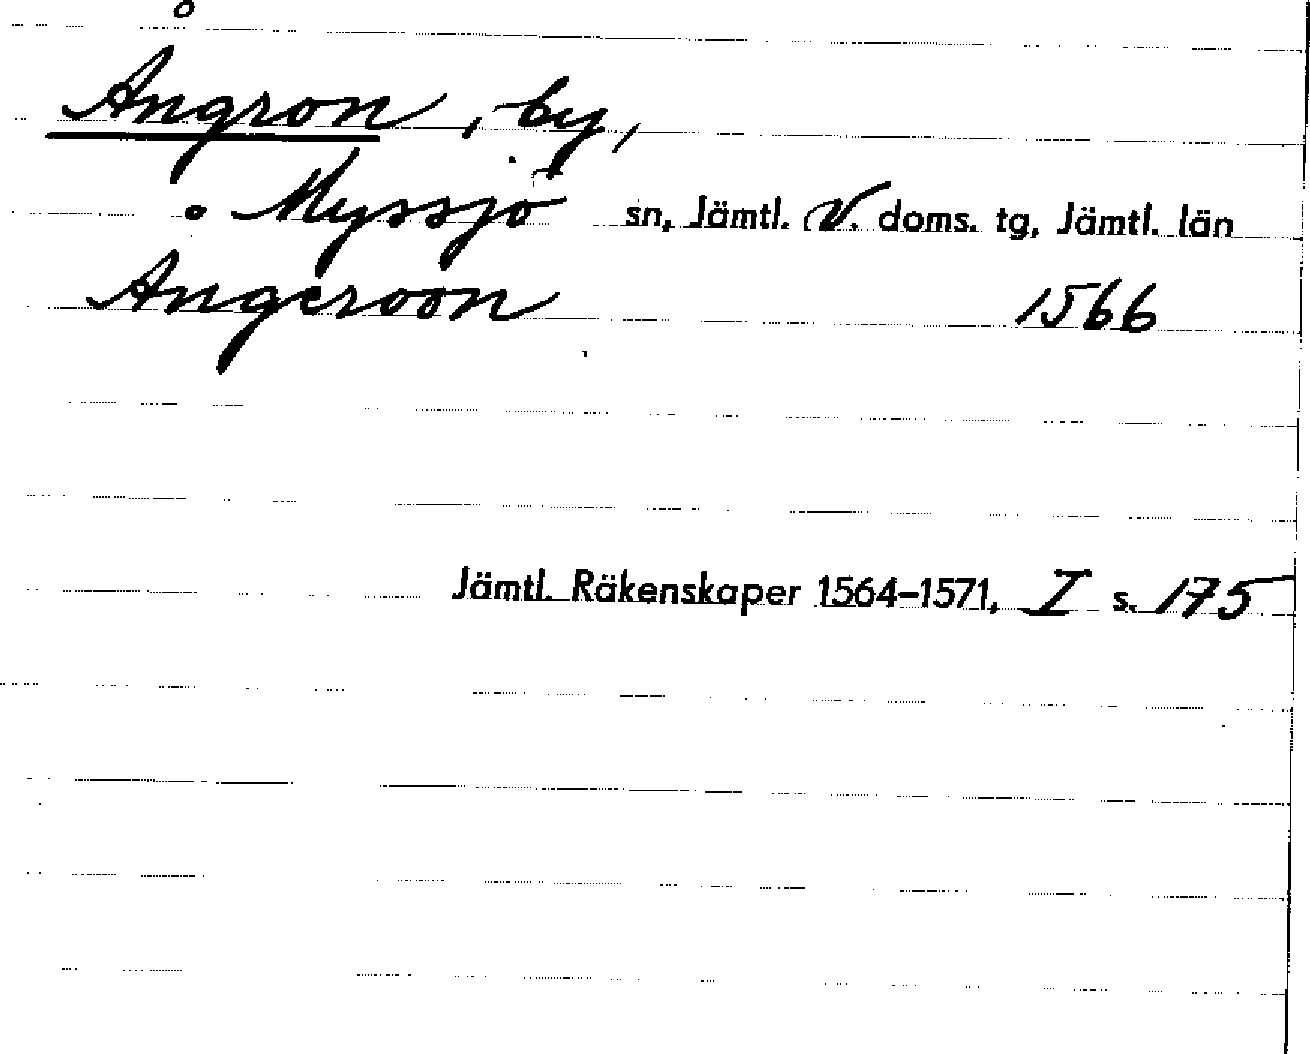 Ångron, by,
Myssjö sn, Jämtl. V. doms. tg, Jämtl. län
Ångeroon 1566
Jämtl. Räkenskaper 1564-1571, I s. 175